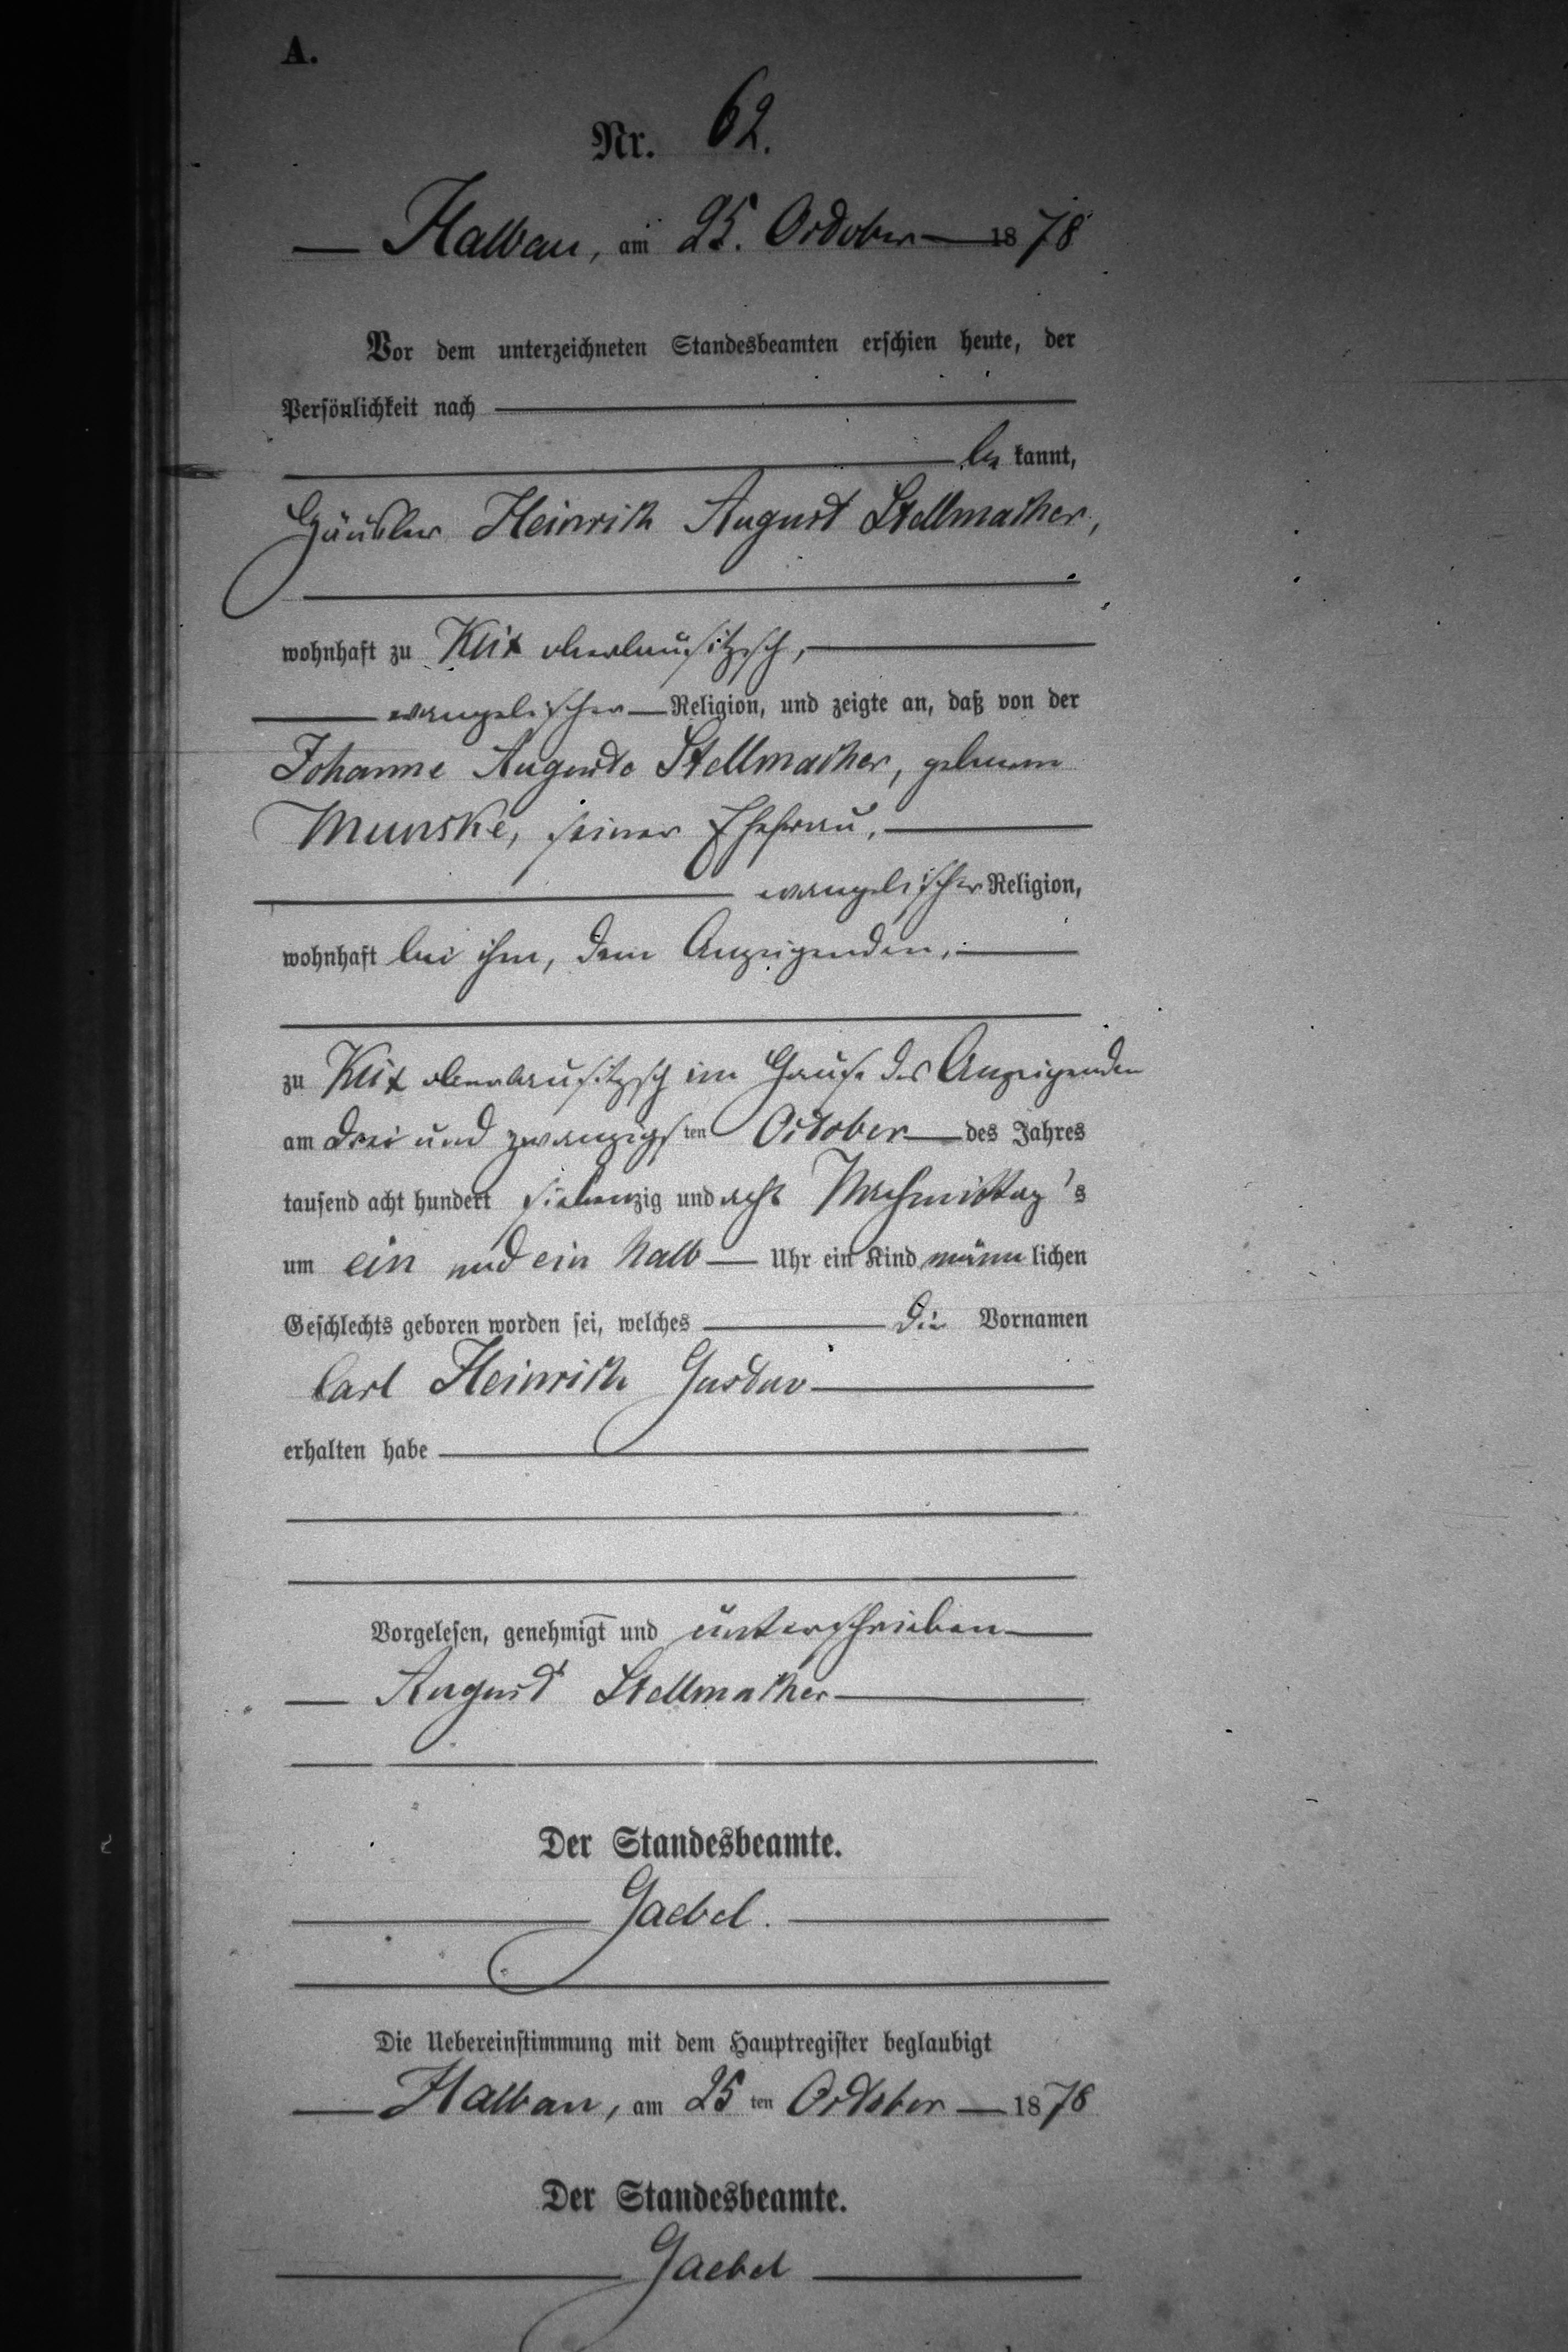 A.
Nr. 62.
Halbau, am 25. October 1878
Vor dem unterzeichneten Standesbeamten erschien heute, der
Persönlichkeit nach
be kannt,
Häusler Heinrich August Stellmacher,
wohnhaft zu Klix oberlausitzsch,
evangelischer Religion, und zeigte an, daß von der
Johanne Auguste Stellmacher, geborene
Munske, seiner Ehefrau,
evangelischer Religion,
wohnhaft bei ihm, dem Anzeigenden,
zu Klix oberlausitzsch im Hause des Anzeigenden
am drei und zwanzigsten October des Jahres
tausend acht hundert siebenzig und acht Nachmittag's
um ein und ein halb Uhr ein Kind männlichen
Geschlechts geboren worden sei, welches die Vornamen
Carl Heinrich Gustav
erhalten habe
Vorgelesen, genehmigt und unterschrieben
August Stellmacher
Der Standesbeamte.
Gaebel.
Die Uebereinstimmung mit dem Hauptregister beglaubigt
Halbau, am 25ten October 1878
Der Standesbeamte.
Gaebel